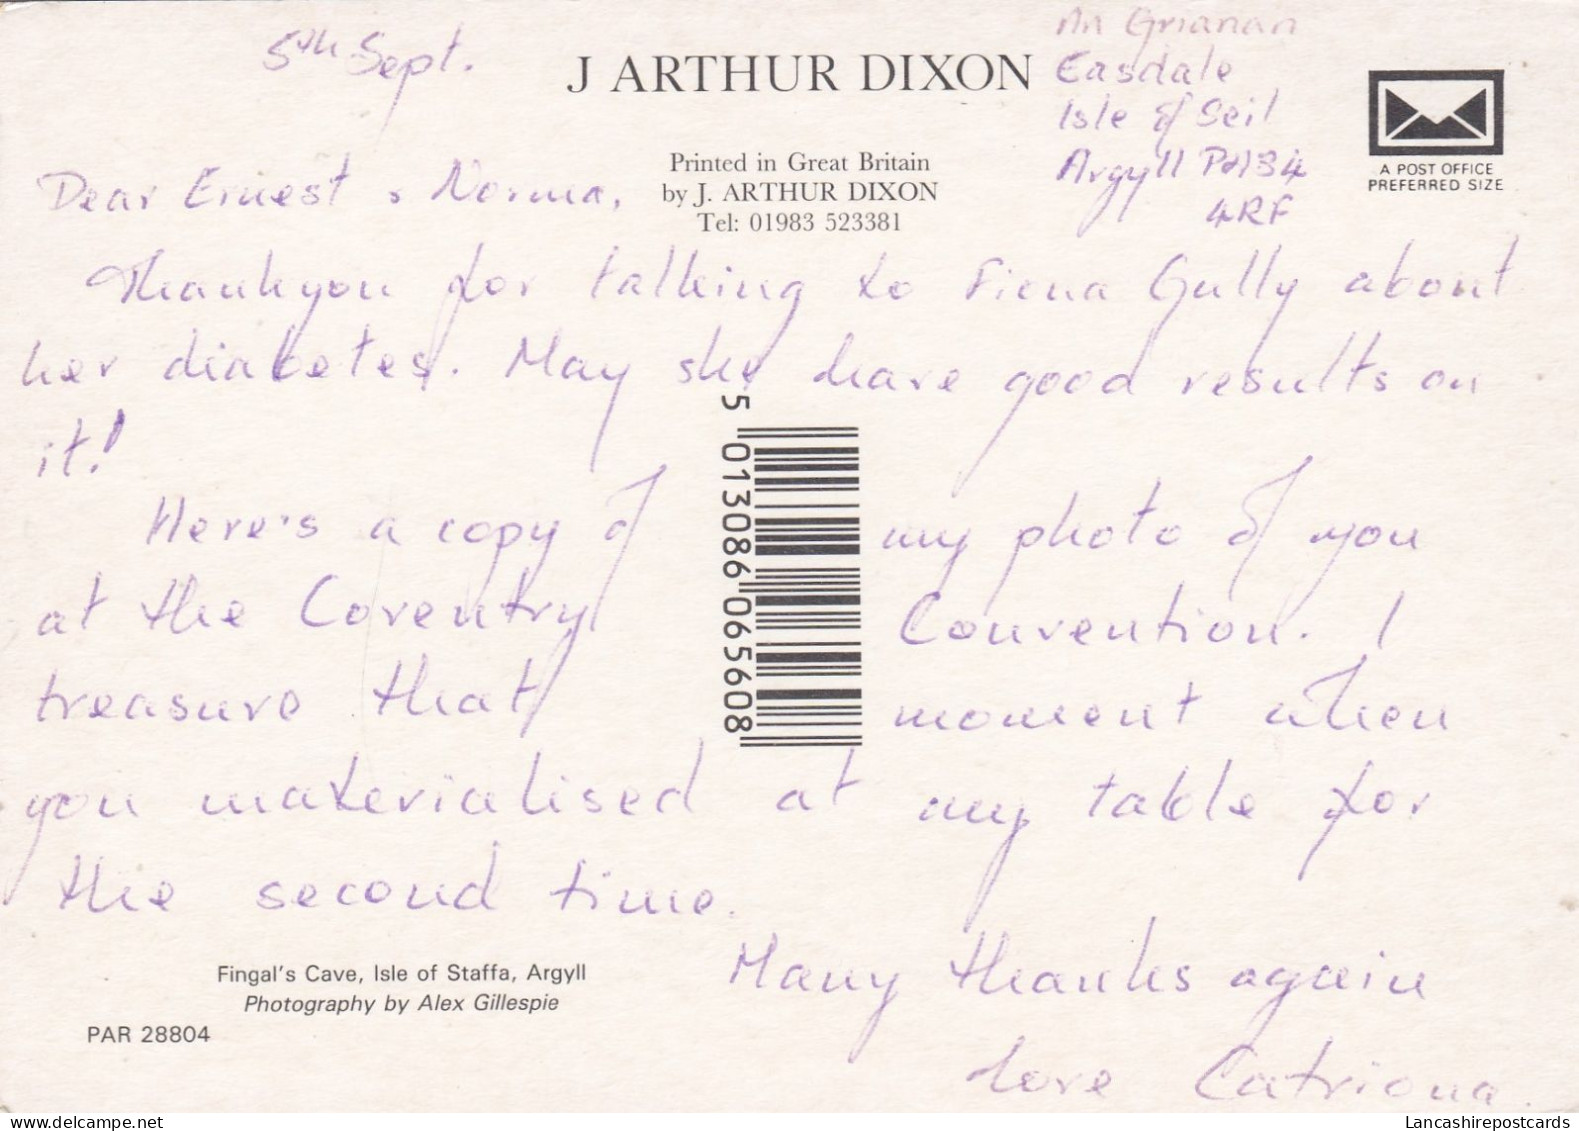 5th Sept.
J ARTHUR DIXON
An Grianan
Easdale
Isle of Seil
Argyll PA34
4RF
A POST OFFICE
PREFERRED SIZE
Printed in Great Britain
by J. ARTHUR DIXON
Tel: 01983 523381
Dear Ernest & Norma,
Thankyou for talking to Fiona Gully about
her diabetes. May she have good results on
it!
Here's a copy of my photo of you
at the Coventry Convention. I
treasure that moment when
you materialised at my table for
the second time.
Many thanks again
love Catriona.
5 013086 065608
Fingal's Cave, Isle of Staffa, Argyll
Photography by Alex Gillespie
PAR 28804
Lancashirepostcards